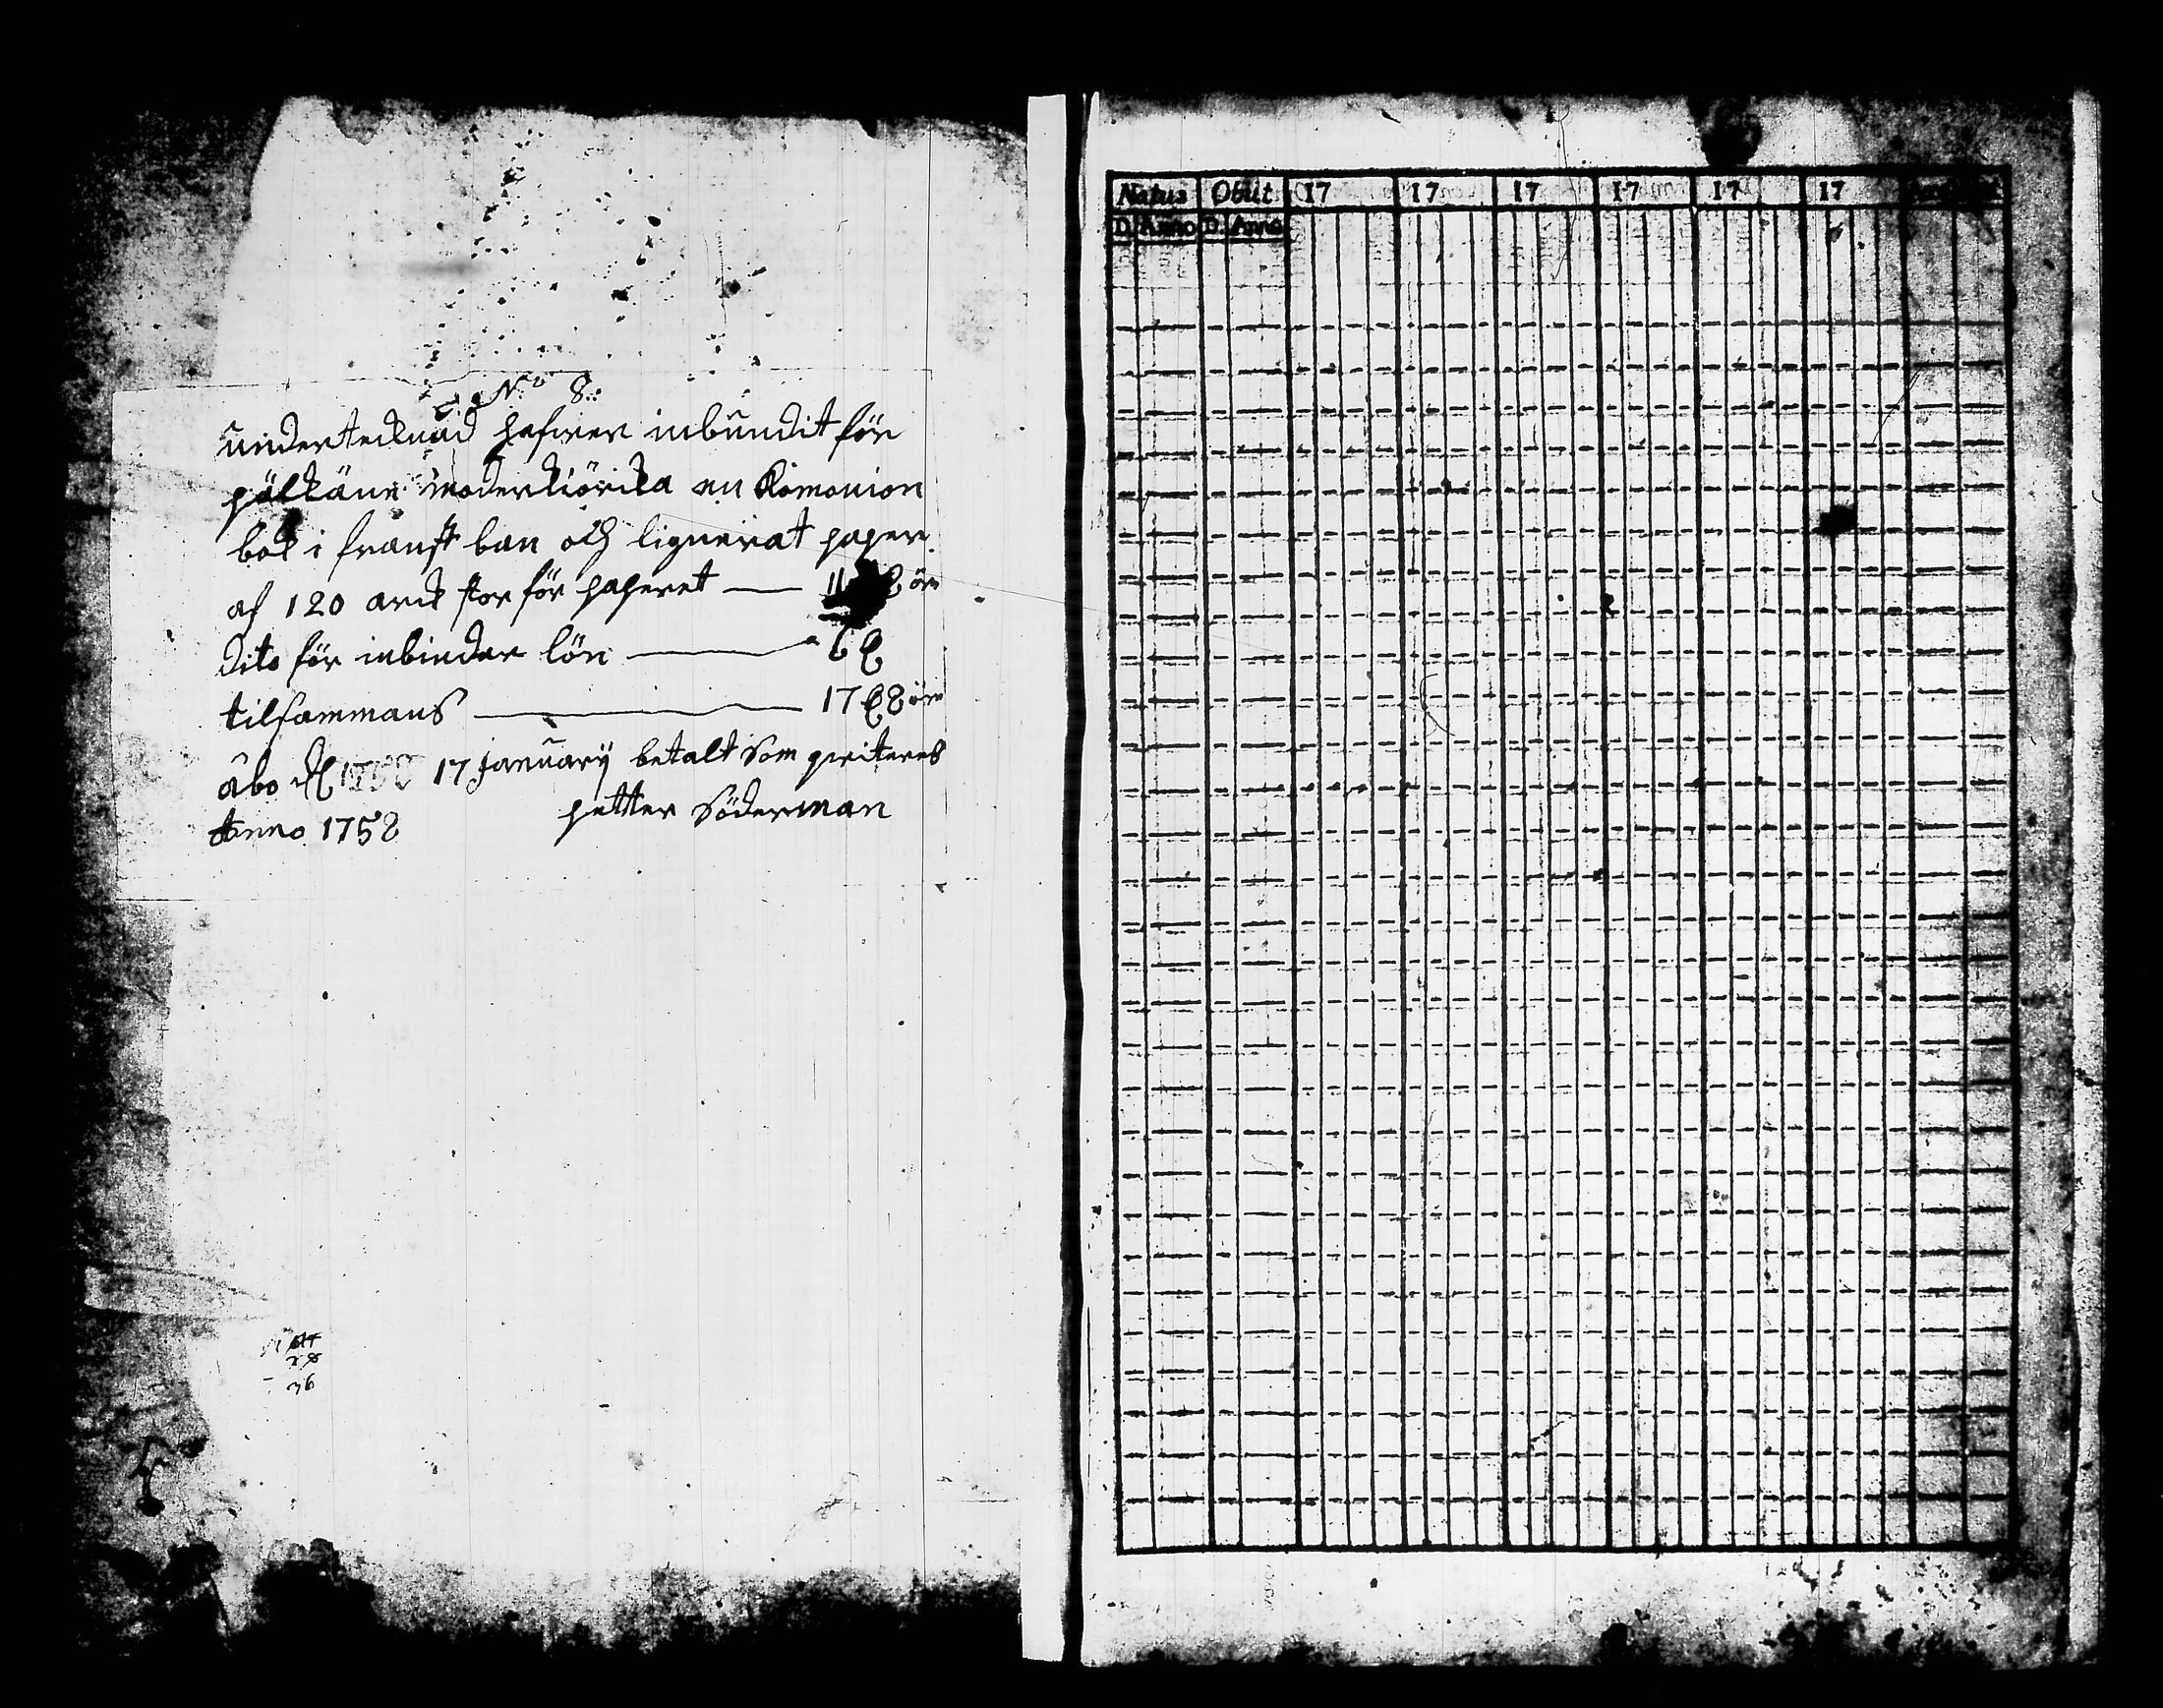 N:o 8:
undertecknad hafwer inbundit för
pälkäne moderkiörika en Komonion
bok i franst ban och lignerat paper
af 120 arck stor för paperet — 11 ör
dito för inbindar lön — 6
tilsammans — 17 8 ör
åbo 17 January betalt som qwiteres
Anno 1758 petter Söderman
Natus Obiit 17 17 17 17 17 17
D. Anno D. Anno
36